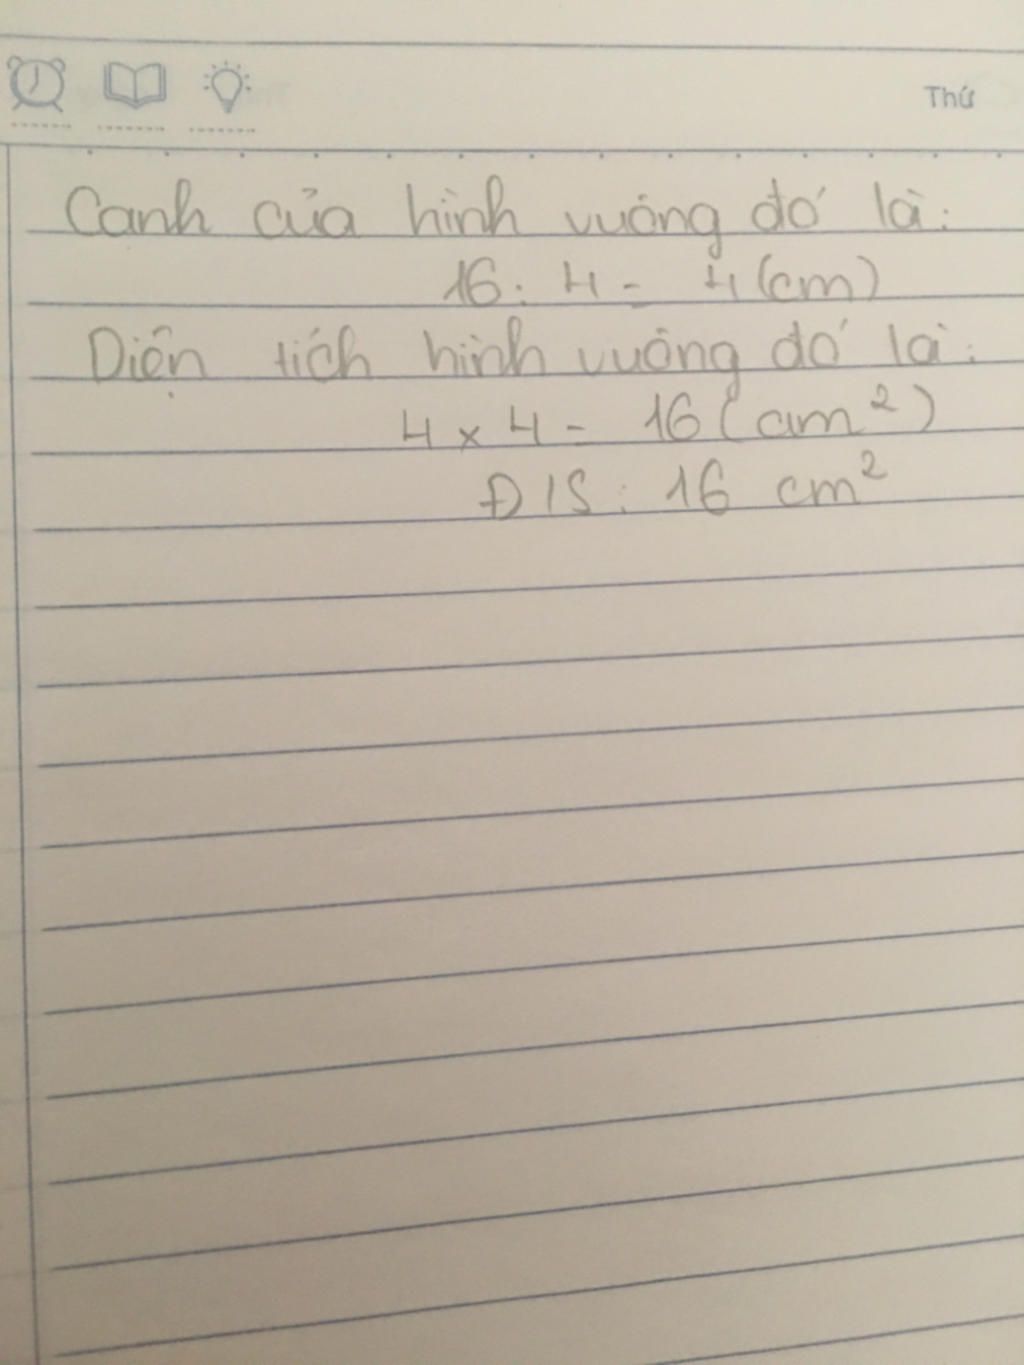 Thứ
Canh của hình vuông đó là:
16: 4 = 4 (cm)
Diện tích hình vuông đó là:
4 x 4 = 16 (cm²)
Đ/S: 16 cm²